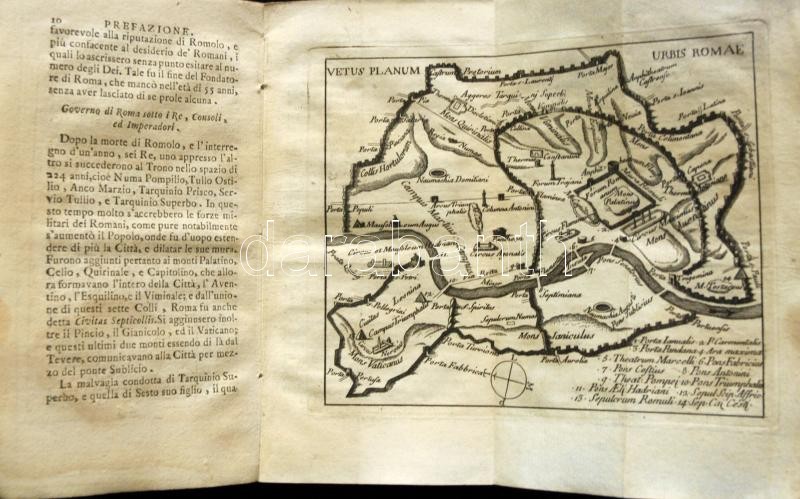 10 PREFAZIONE.
favorevole alla riputazione di Romolo, e
più confacente al desiderio de' Romani, i
quali lo ascrissero senza punto esitare al nu-
mero degli Dei. Tale fu il fine del Fondato-
re di Roma, che mancò nell'età di 55 anni,
senza aver lasciato di se prole alcuna.
Governo di Roma sotto i Re, Consoli,
ed Imperadori.
Dopo la morte di Romolo, e l'interre-
gno d'un'anno, sei Re, uno appresso l'al-
tro si succederono al Trono nello spazio di
224 anni, cioè Numa Pompilio, Tullo Osti-
lio, Anco Marzio, Tarquinio Prisco, Ser-
vio Tullio, e Tarquinio Superbo. In que-
sto tempo molto s'accrebbero le forze mi-
litari dei Romani, come pure notabilmente
s'aumentò il Popolo, onde fu d'uopo esten-
dere di più la Città, e dilatar le sue mura.
Furono aggiunti pertanto ai monti Palatino,
Celio, Quirinale, e Capitolino, che allo-
ra formavano l'intero della Città, l'Aven-
tino, l'Esquilino, e il Viminale; e dall'unio-
ne di questi sette Colli, Roma fu anche
detta Civitas Septicollis. Si aggiunsero inol-
tre il Pincio, il Gianicolo, ed il Vaticano;
e questi ultimi due monti essendo di là dal
Tevere, comunicavano alla Città per mez-
zo del ponte Sublicio.
La malvagia condotta di Tarquinio Su-
perbo, e quella di Sesto suo figlio, il qua-
VETUS PLANUM
URBIS ROMAE
Castrum Pretorium
Porta S. Laurentij
Porta Major
Amphitheatrum Castrense
Aggeres Tarquinij Superbi
Porta S. Joannis
Porta Latina
Porta Salaria
Mons Quirinalis
Porta Pinciana
Collis Hortulorum
Naumachia Domitiani
Thermae
Constantini
Forum Trajani
Porta Celimontana
Porta Capena
Amphitheatrum
Forum Romanum
Mons Palatinus
Campus Martius
Arcus Triumphalis
Columna Antonini
Porta Populi
Mausoleum Augusti
Circus Maximus
Mons Aventinus
Porta Trigemina
M. Testaceus
Porta Septimiana
Porta S. Spiritus
Civitas Leonina
Porta Pellegrini
Campus Triumphalis
Mons Vaticanus
Porta Pertusa
Porta Fabbrica
Sepulcrum Numae
Mons Janiculus
Porta Aurelia
Porta Portuensis
1. Porta Janualis 2. P. Carmentalis
3. Porta Pandana 4. Ara maxima
5. Theatrum Marcelli 6. Pons Fabricius
7. Pons Cestius 8. Pons Antonini
9. Theat. Pompei 10. Pons Triumphalis
11. Pons Ælij Hadriani 12. Sepul. Scip. Affric.
13. Sepulcrum Romuli 14. Sep. Caij Cestij
darabanth